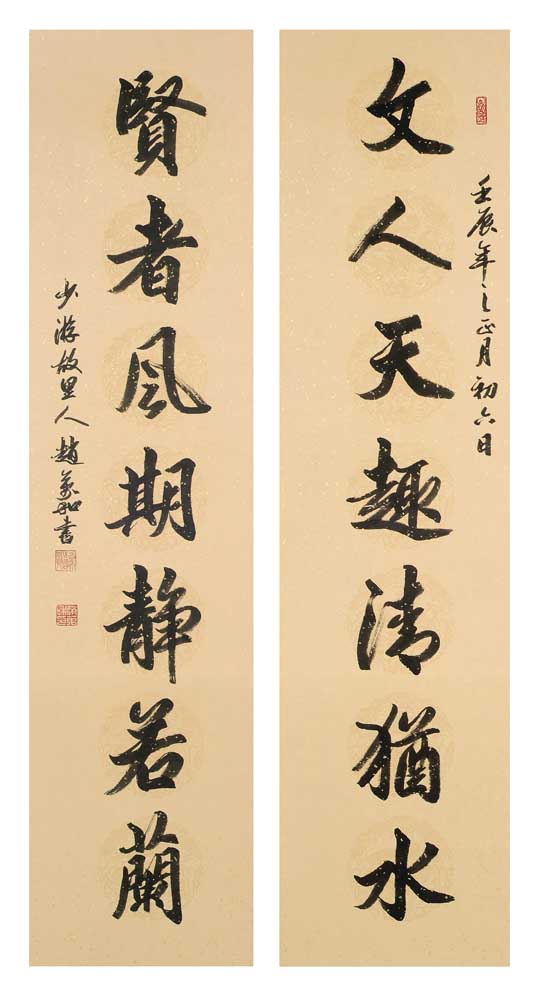 壬辰年之正月初六日
文人天趣清猶水
賢者風期静若蘭
少游故里人趙義和書